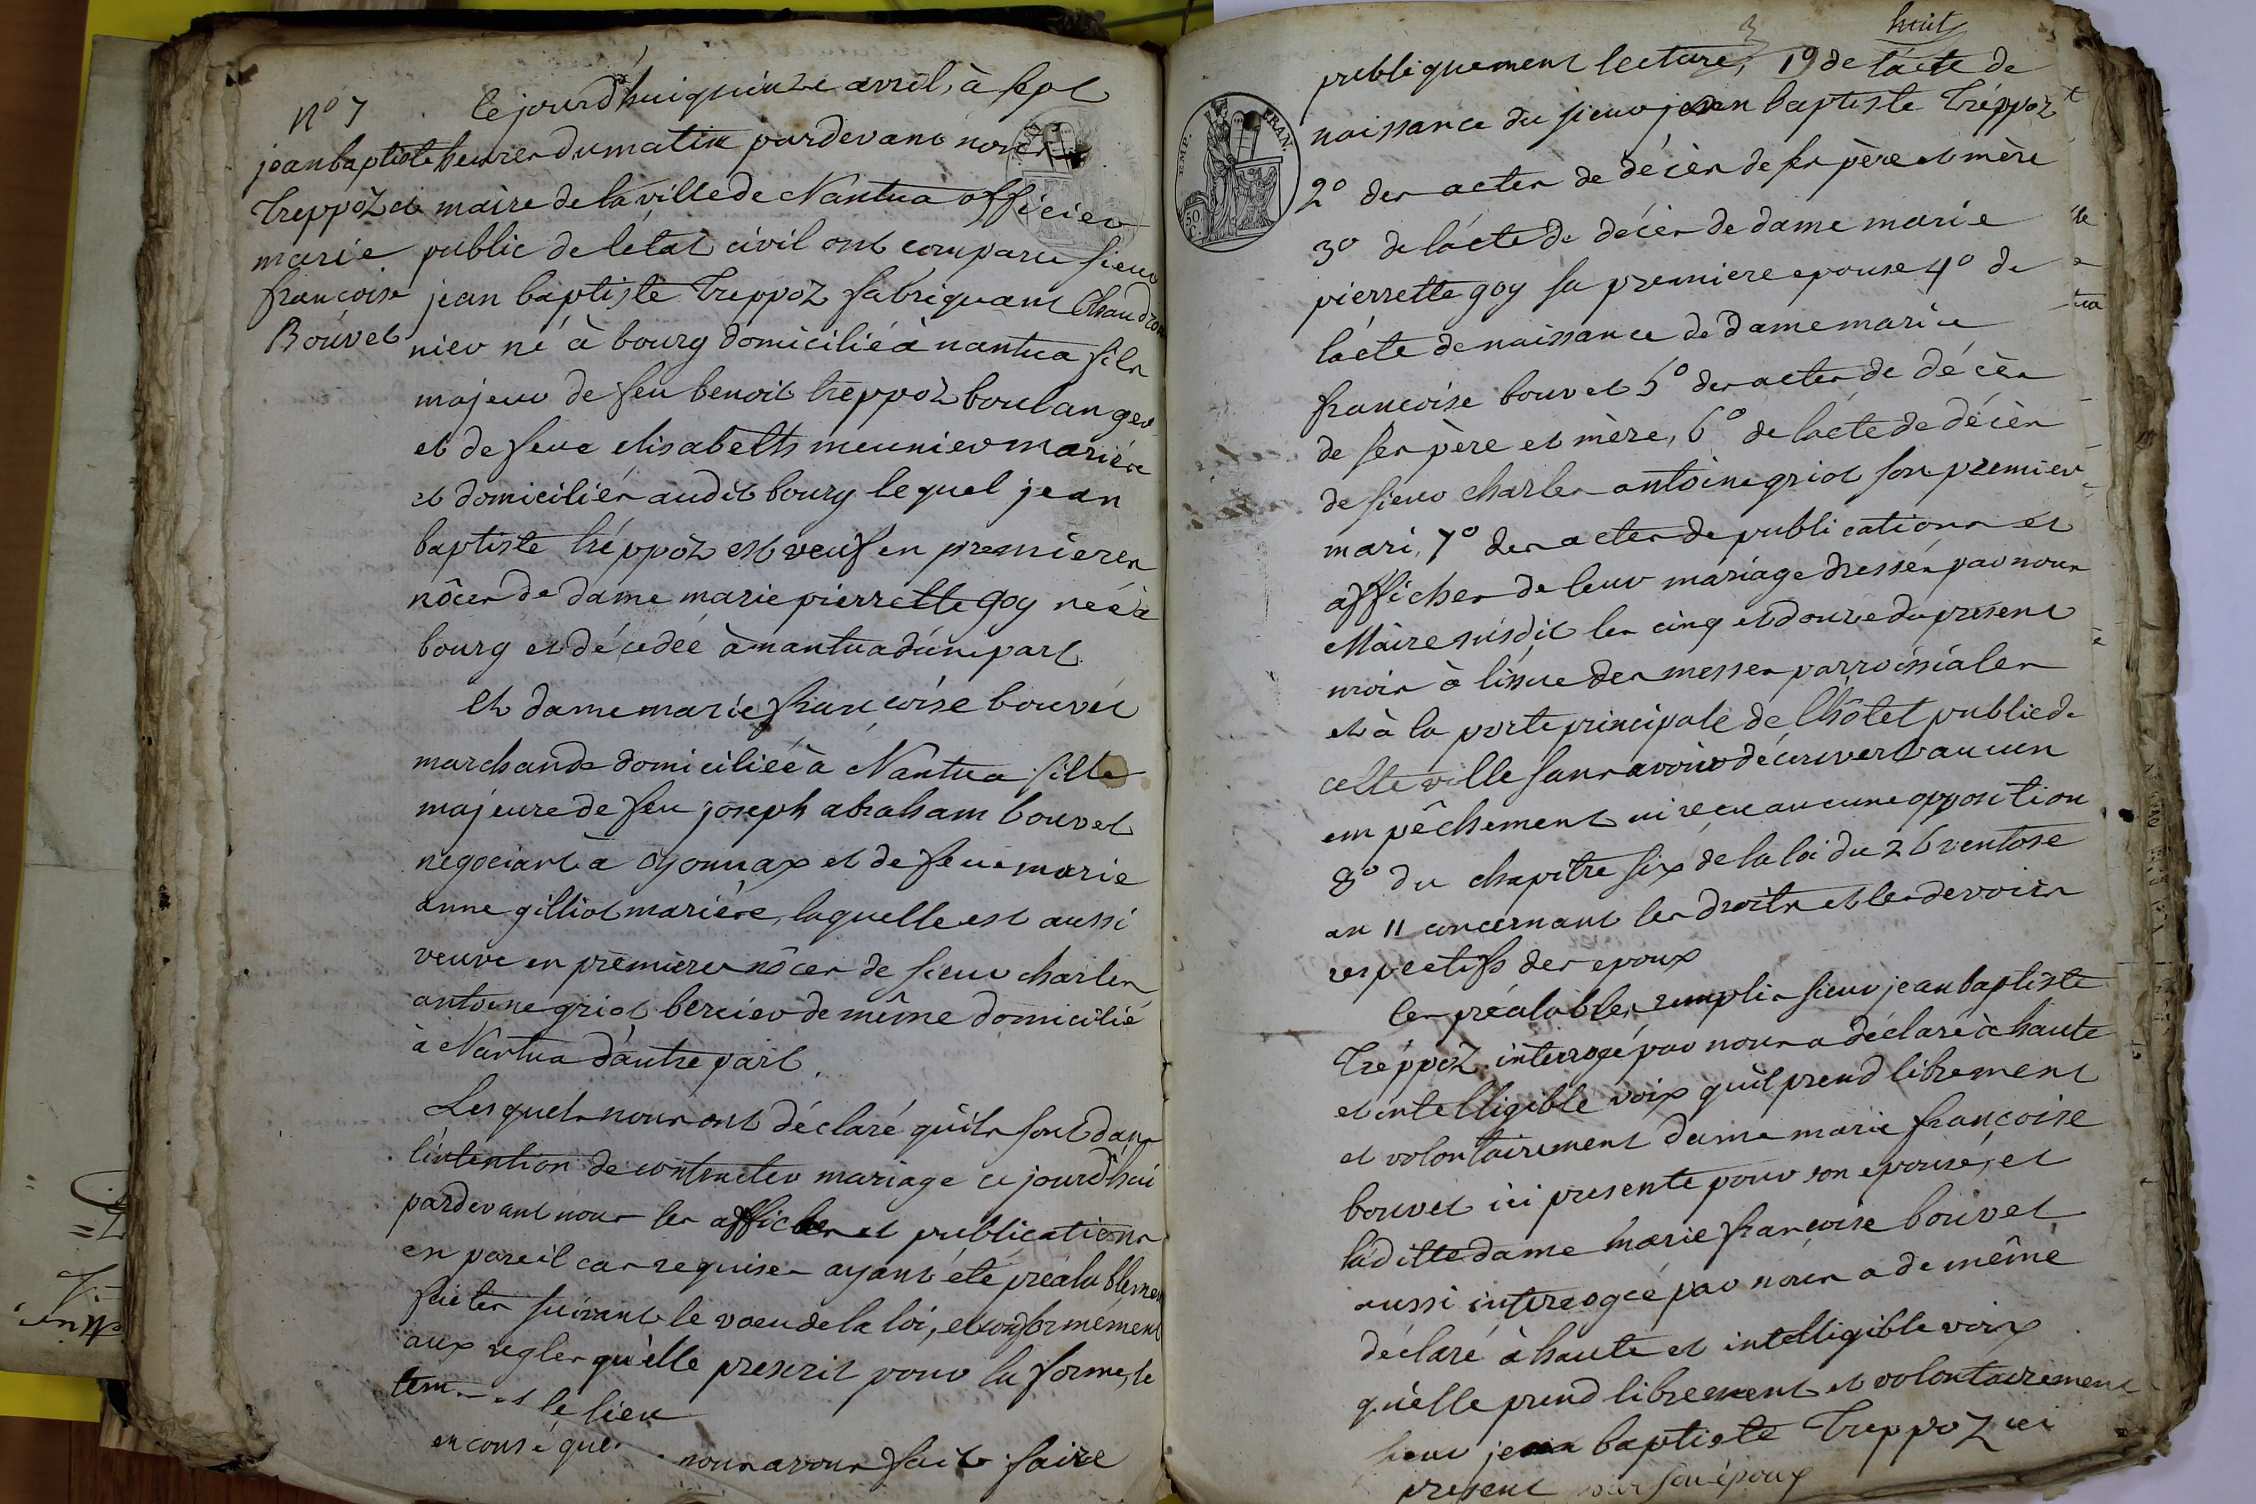 N° 7
jean baptiste
treppoz et
marie
francoise
Bouvet
Ce jourd'hui quinze avril, à sept
heures du matin pardevant nous
maire de la ville de Nantua officier
public de létat civil ont comparu sieur
jean baptiste treppoz fabriquant Chaudron
nier né à bourg domicilié à nantua fils
majeur de feu benoit treppoz boulanger
et de feue elisabeth meunier mariés
et domiciliés audit bourg lequel jean
baptiste tréppoz est veuf en premieres
nôces de dame marie pierrette goy née à
bourg et décedée à nantua d'une part
Et dame marie françoise bouvet
marchande domiciliée à Nantua fille
majeure de feu joseph abraham bouvet
negociant à oyonnax et de feue marie
anne gilliot mariés, laquelle est aussi
veuve en premieres nôces de sieur charles
antoine griot bercier de même domicilié
à Nantua d'autre part.
Lesquels nous ont déclaré qu'ils sont dans
l'intention de contracter mariage ce jourd'hui
pardevant nous les affiches et publications
en pareil cas requises ayant été préalablement
faites suivant le voeu de la loi, et conformément
aux regles qu'elle prescrit pour la forme, le
tems et le lieu
en conséquence nous avons fait faire
huit
publiquement lecture, 1° de l'acte de
naissance du sieur jean baptiste tréppoz
2° des actes de décès de ses père et mère
3° de lácte de décès de dame marie
pierrette goy sa premiere epouse 4° de
lácte de naissance de dame marie
francoise bouvet 5° des actes de décès
de ses père et mère, 6° de lácte de décès
de sieur charles antoine griot son premier
mari, 7° des actes de publications et
affiches de leur mariage dressés par nous
Maire susdit les cinq et douze du présent
mois à l'issue des messes parroissiales
et à la porte principale de l'hôtel public de
cette ville sans avoir découvert aucun
empêchement ni reçu aucune opposition
8° du chapitre six de la loi du 26 ventose
an 11 concernant les droits et les devoirs
respectifs des epoux
Ces préalables remplis sieur jean baptiste
tréppoz interrogé par nous a déclaré à haute
et intelligible voix qu'il prend librement
et volontairement dame marie françoise
bouvet ici presente pour son epouse, et
laditte dame marie françoise bouvet
aussi interogée par nous a de même
déclaré à haute et intelligible voix
qu'elle prend librement et volontairement
sieur jean baptiste treppoz ici
present pour son époux
EMP. FRAN.
50
C.